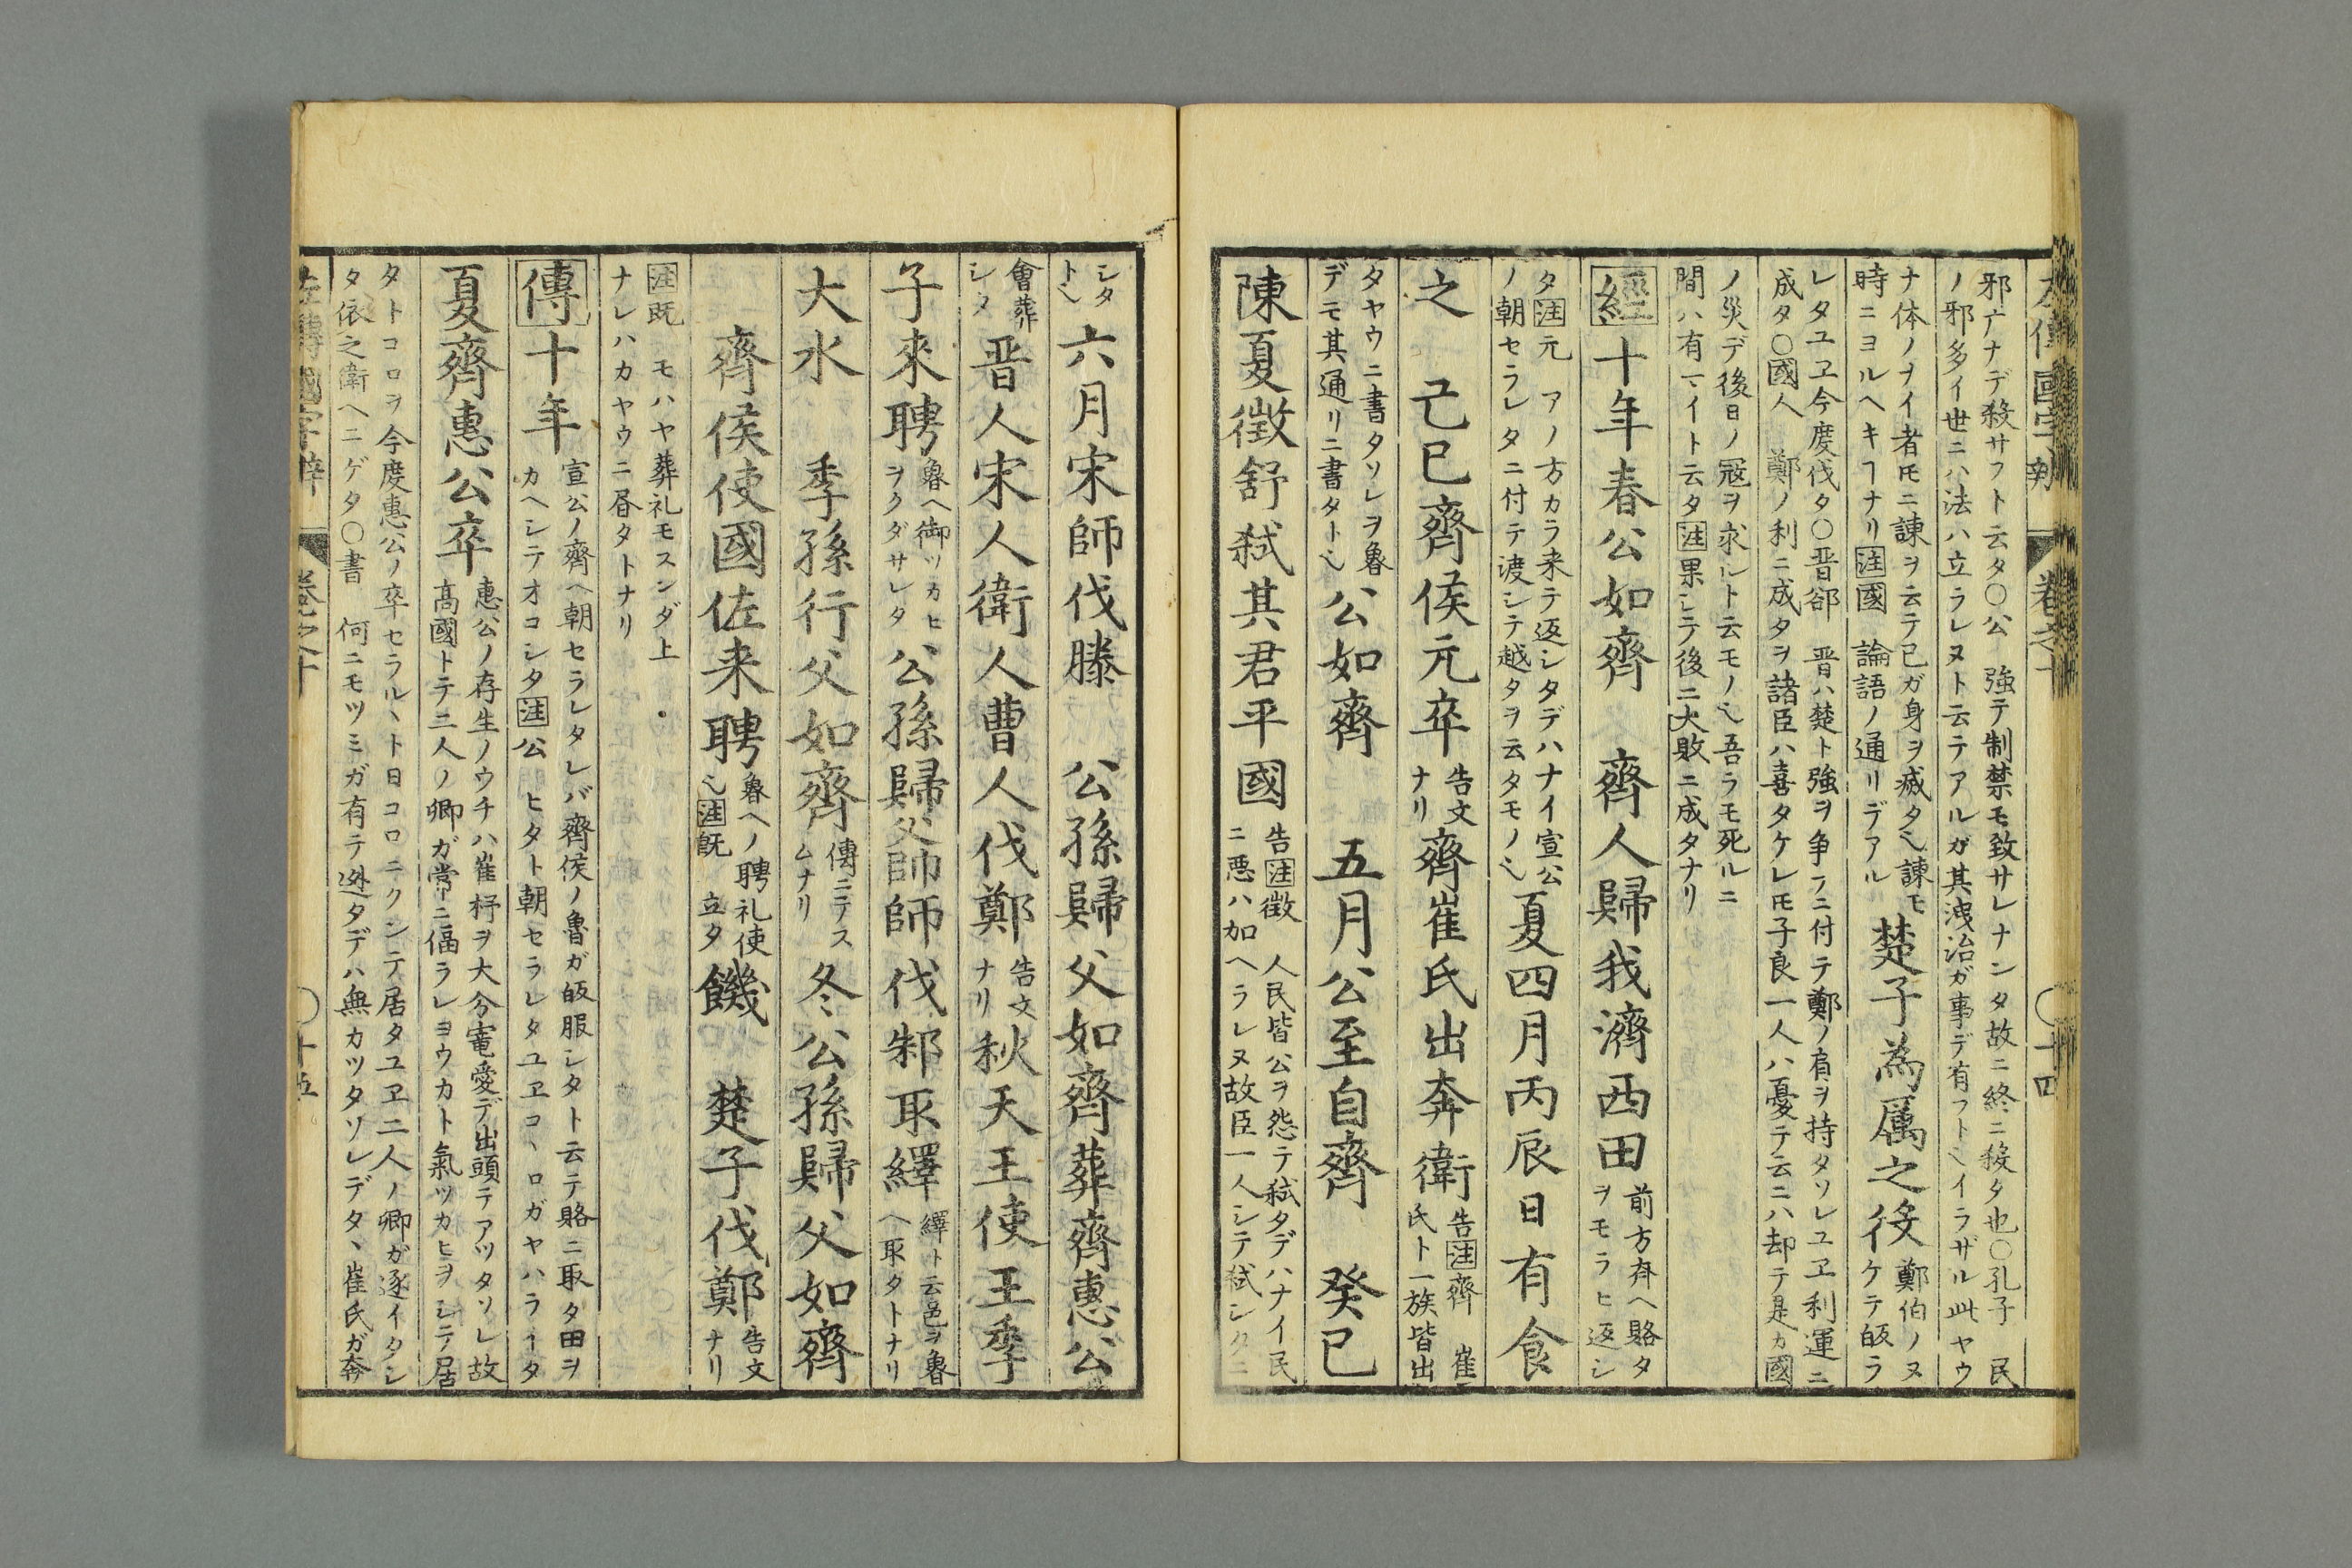 左傳國字辯 卷之十 〇十四
邪亡ナデ殺サフト云タ〇公 強テ制禁モ致サレナンタ故ニ終ニ殺タ也〇孔子 民
ノ邪多イ世ニハ法ハ立ラレヌト云テアルガ其洩冶ガ事デ有フト〻イラザル此ヤウ
ナ体ノヲイ者𪜈ニ諌ヲ云テ已ガ身ヲ㓕タ〻諌モ
時ニヨルヘキヿナリ注國 論語ノ通リデアル
楚子為厲之役
鄭伯ノヌ
ケテ皈ラ
レタユヱ今度伐タ〇晋郤 晋ハ楚ト強ヲ争フニ付テ鄭ノ肩ヲ持タソレユヱ利運ニ
成タ〇國人 鄭ノ利ニ成タヲ諸臣ハ喜タケレ𪜈子良一人ハ憂テ云ニハ却テ是カ國
ノ災デ後日ノ冦ヲ求ルト云モノ〻吾ラモ死ルニ
間ハ有マイト云タ注果シテ後ニ大敗ニ成タナリ
經十年春公如齊 齊人歸我濟西田
前方斉ヘ賂タ
ヲモラヒ返シ
タ注元 アノ方カラ来テ返シタデハナイ宣公
ノ朝セラレタニ付テ渡シテ越タヲ云タモノ〻
夏四月丙辰日有食
之 己巳齊侯元卒
告文
ナリ
齊崔氏出奔衛
告注齊 崔
氏ト一族皆出
タヤウニ書タソレヲ魯
デモ其通リニ書タト〻
公如齊 五月公至自齊 癸巳
陳夏徴舒弑其君平國
告注徴 人民皆公ヲ怨テ弑タデハナイ民
ニ悪ハ加ヘラレヌ故臣一人シテ弑シタニ
シタ
ト〻
六月宋師伐滕 公孫歸父如齊葬齊惠公
會葬
シタ
晋人宋人衛人曹人伐鄭
告文
ナリ
秋天王使王季
子來聘
魯ヘ御ツカヒ
ヲクダサレタ
公孫歸父帥師伐邾取繹
繹ト云邑ヲ魯
ヘ取タトナリ
大水 季孫行父如齊
傳ニテス
ムナリ
冬公孫歸父如齊
齊侯使國佐来聘
魯ヘノ聘礼使
〻注既 立タ
饑 楚子伐鄭
告文
ナリ
注既 モハヤ葬礼モスンダ上
ナレハカヤウニ㫺タトナリ
傳十年
宣公ノ齊ヘ朝セラレタレバ齊侯ノ魯ガ皈服シタト云テ賂ニ取タ田ヲ
カヘシテオコシタ注公 ヒタト朝セラレタユヱコヽロガヤハライタ
夏齊惠公卒
惠公ノ存生ノウチハ崔杼ヲ大分寵愛デ出頭テアツタソレ故
髙國トテ二人ノ卿ガ常ニ偪ラレヨウカト氣ツカヒヲシテ居
タトコロヲ今度惠公ノ卒セラルヽト日コロニクンテ居タユヱ二人ノ卿ガ逐イタシ
タ依之衛ヘニゲタ〇書 何ニモツミガ有テ迯タデハ無カツタソレデタヽ崔氏ガ奔
左傳國字辯 卷之十 〇十五